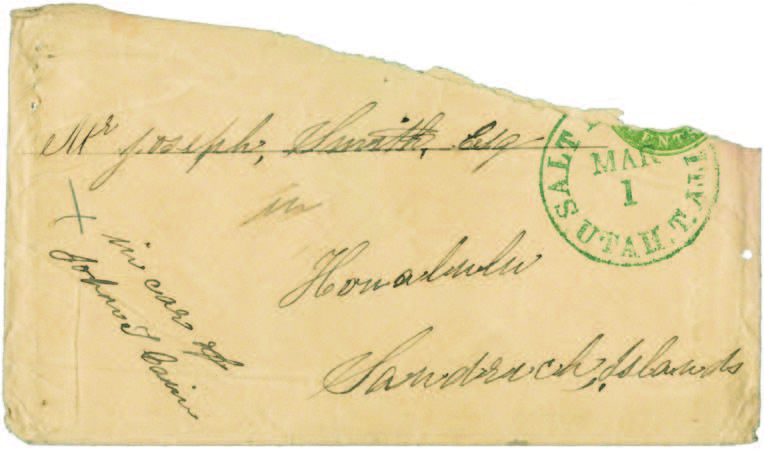 Mr Joseph, Smith, Esq
in
Honalulu
Sandrach, Islands
in car of
John T Cain
SALT
MAR
1
UTAH.T.
ENTS